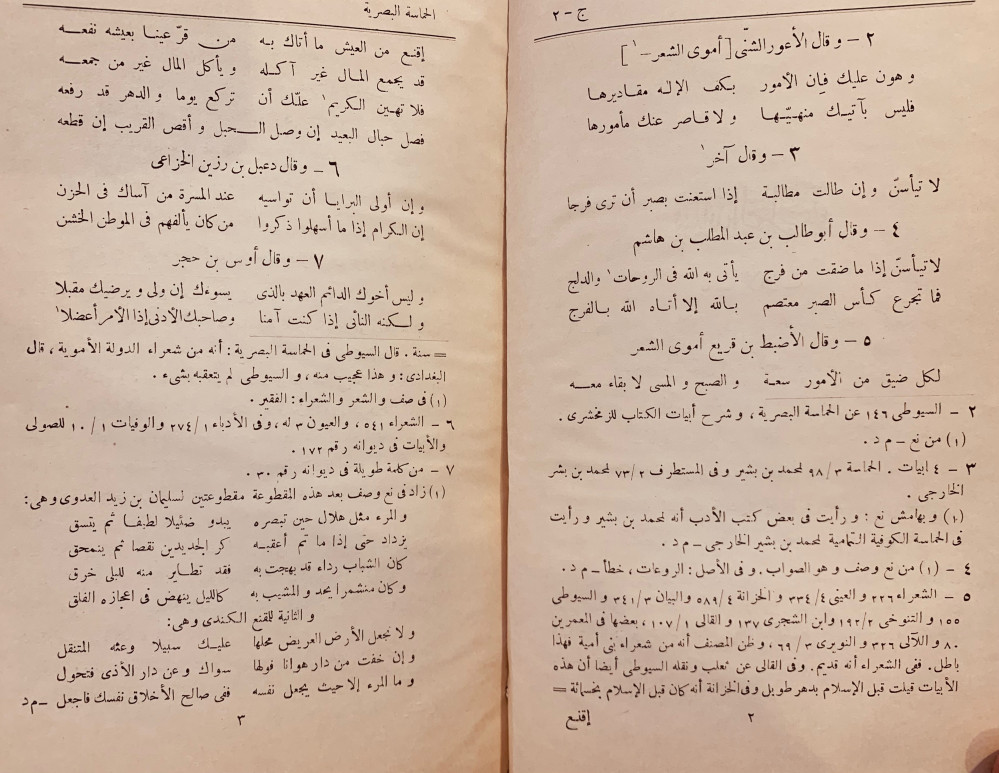 ج - ٢
٢ - وقال الأعور الشنّى [أموى الشعر - ١]
وهون عليك فإن الأمور بكف الإله مقاديرها
فليس بآتيك منهيّها ولا قاصر عنك مأمورها
٣ - وقال آخر ١
لا تيأسنّ وإن طالت مطالبة إذا استعنت بصبر أن ترى فرجا
٤ - وقال أبو طالب بن عبد المطلب بن هاشم
لا تيأسنّ إذا ما ضقت من فرج يأتى به الله فى الروحات ١ والدلج
فما تجرع كأس الصبر معتصم بالله إلا أتاه الله بالفرج
٥ - وقال الأضبط بن قريع أموى الشعر
لكل ضيق من الأمور سعة والصبح والمسى لا بقاء معه
٢ - السيوطى ١٤٦ عن الحماسة البصرية ، وشرح أبيات الكتاب للزمخشرى .
(١) من نع - م د .
٣ - ٤ ابيات . الحماسة ٣/ ٩٨ لمحمد بن بشير وفى المستطرف ٢/ ٧٣ لمحمد بن بشر
الخارجى .
(١) وبهامش نع : ورأيت فى بعض كتب الأدب أنه لمحمد بن بشير ورأيت
فى الحماسة الكوفية التمامية لمحمد بن بشير الخارجى - م د .
٤ - (١) من نع وصف وهو الصواب . وفى الأصل : الروعات ، خطأ - م د .
٥ - الشعراء ٢٢٦ والعينى ٤/ ٣٣٤ والخزانة ٤/ ٥٨٩ والبيان ٣/ ٣٤١ والسيوطى
١٥٥ والتنوخى ٢/ ١٩٢ وابن الشجرى ١٣٧ والقالى ١/ ١٠٧، بعضها فى المعمرين
٨٠ واللآلى ٣٢٦ والنويرى ٣/ ٦٩ ، وظن المصنف أنه من شعراء بنى أمية فهذا
باطل. ففى الشعراء أنه قديم. وفى القالى عن ثعلب ونقله السيوطى أيضا أن هذه
الأبيات قيلت قبل الإسلام بدهر طويل وفى الخزانة أنه كان قبل الإسلام بخمسمائة =
٢ إقنع
الحماسة البصرية
إقنع من العيش ما أتاك به من قرّ عينا بعيشه نفعه
قد يجمع المال غير آكله ويأكل المال غير من جمعه
فلا تهين الكريم ١ علّك أن تركع يوما والدهر قد رفعه
فصل حبال البعيد إن وصل الحبل وأقص القريب إن قطعه
٦ - وقال دعبل بن رزين الخزاعى
وإن أولى البرايا أن تواسيه عند المسرة من آساك فى الحزن
إن الكرام إذا ما أسهلوا ذكروا من كان يألفهم فى الموطن الخشن
٧ - وقال أوس بن حجر
وليس أخوك الدائم العهد بالذى يسوءك إن ولى ويرضيك مقبلا
ولكنه النائى إذا كنت آمنا وصاحبك الأدنى إذا الأمر أعضلا ١
= سنة . قال السيوطى فى الحماسة البصرية : أنه من شعراء الدولة الأموية ، قال
البغدادى: وهذا عجيب منه ، والسيوطى لم يتعقبه بشىء .
(١) فى صف والشعر والشعراء : الفقير .
٦ - الشعراء ٥٤١ ، والعيون ٣ له ، وفى الأدباء ١/ ٢٧٤ والوفيات ١ / ١٠ للصولى
والأبيات فى ديوانه رقم ١٧٢ .
٧ - من كلمة طويلة فى ديوانه رقم ٣٠ .
(١) زاد فى نع وصف بعد هذه المقطوعة مقطوعتين لسليمان بن زيد العدوى وهى:
والمرء مثل هلال حين تبصره يبدو ضئيلا لطيفا ثم يتسق
يزداد حتى إذا ما تم أعقبه كر الجديدين نقصا ثم ينمحق
كان الشباب رداء قد بهجت به فقد تطاير منه للبلى خرق
وكان منشمرا يحد والمشيب به كالليل ينهض فى اعجازه الفلق
والثانية للقنع الكندى وهى:
ولا نجعل الأرض العريض محلها عليك سبيلا وعثه المتنقل
وإن خفت من دار هوانا فولها سواك وعن دار الأذى فتحول
وما المرء إلا حيث يجعل نفسه ففى صالح الأخلاق نفسك فاجعل - م د
٣